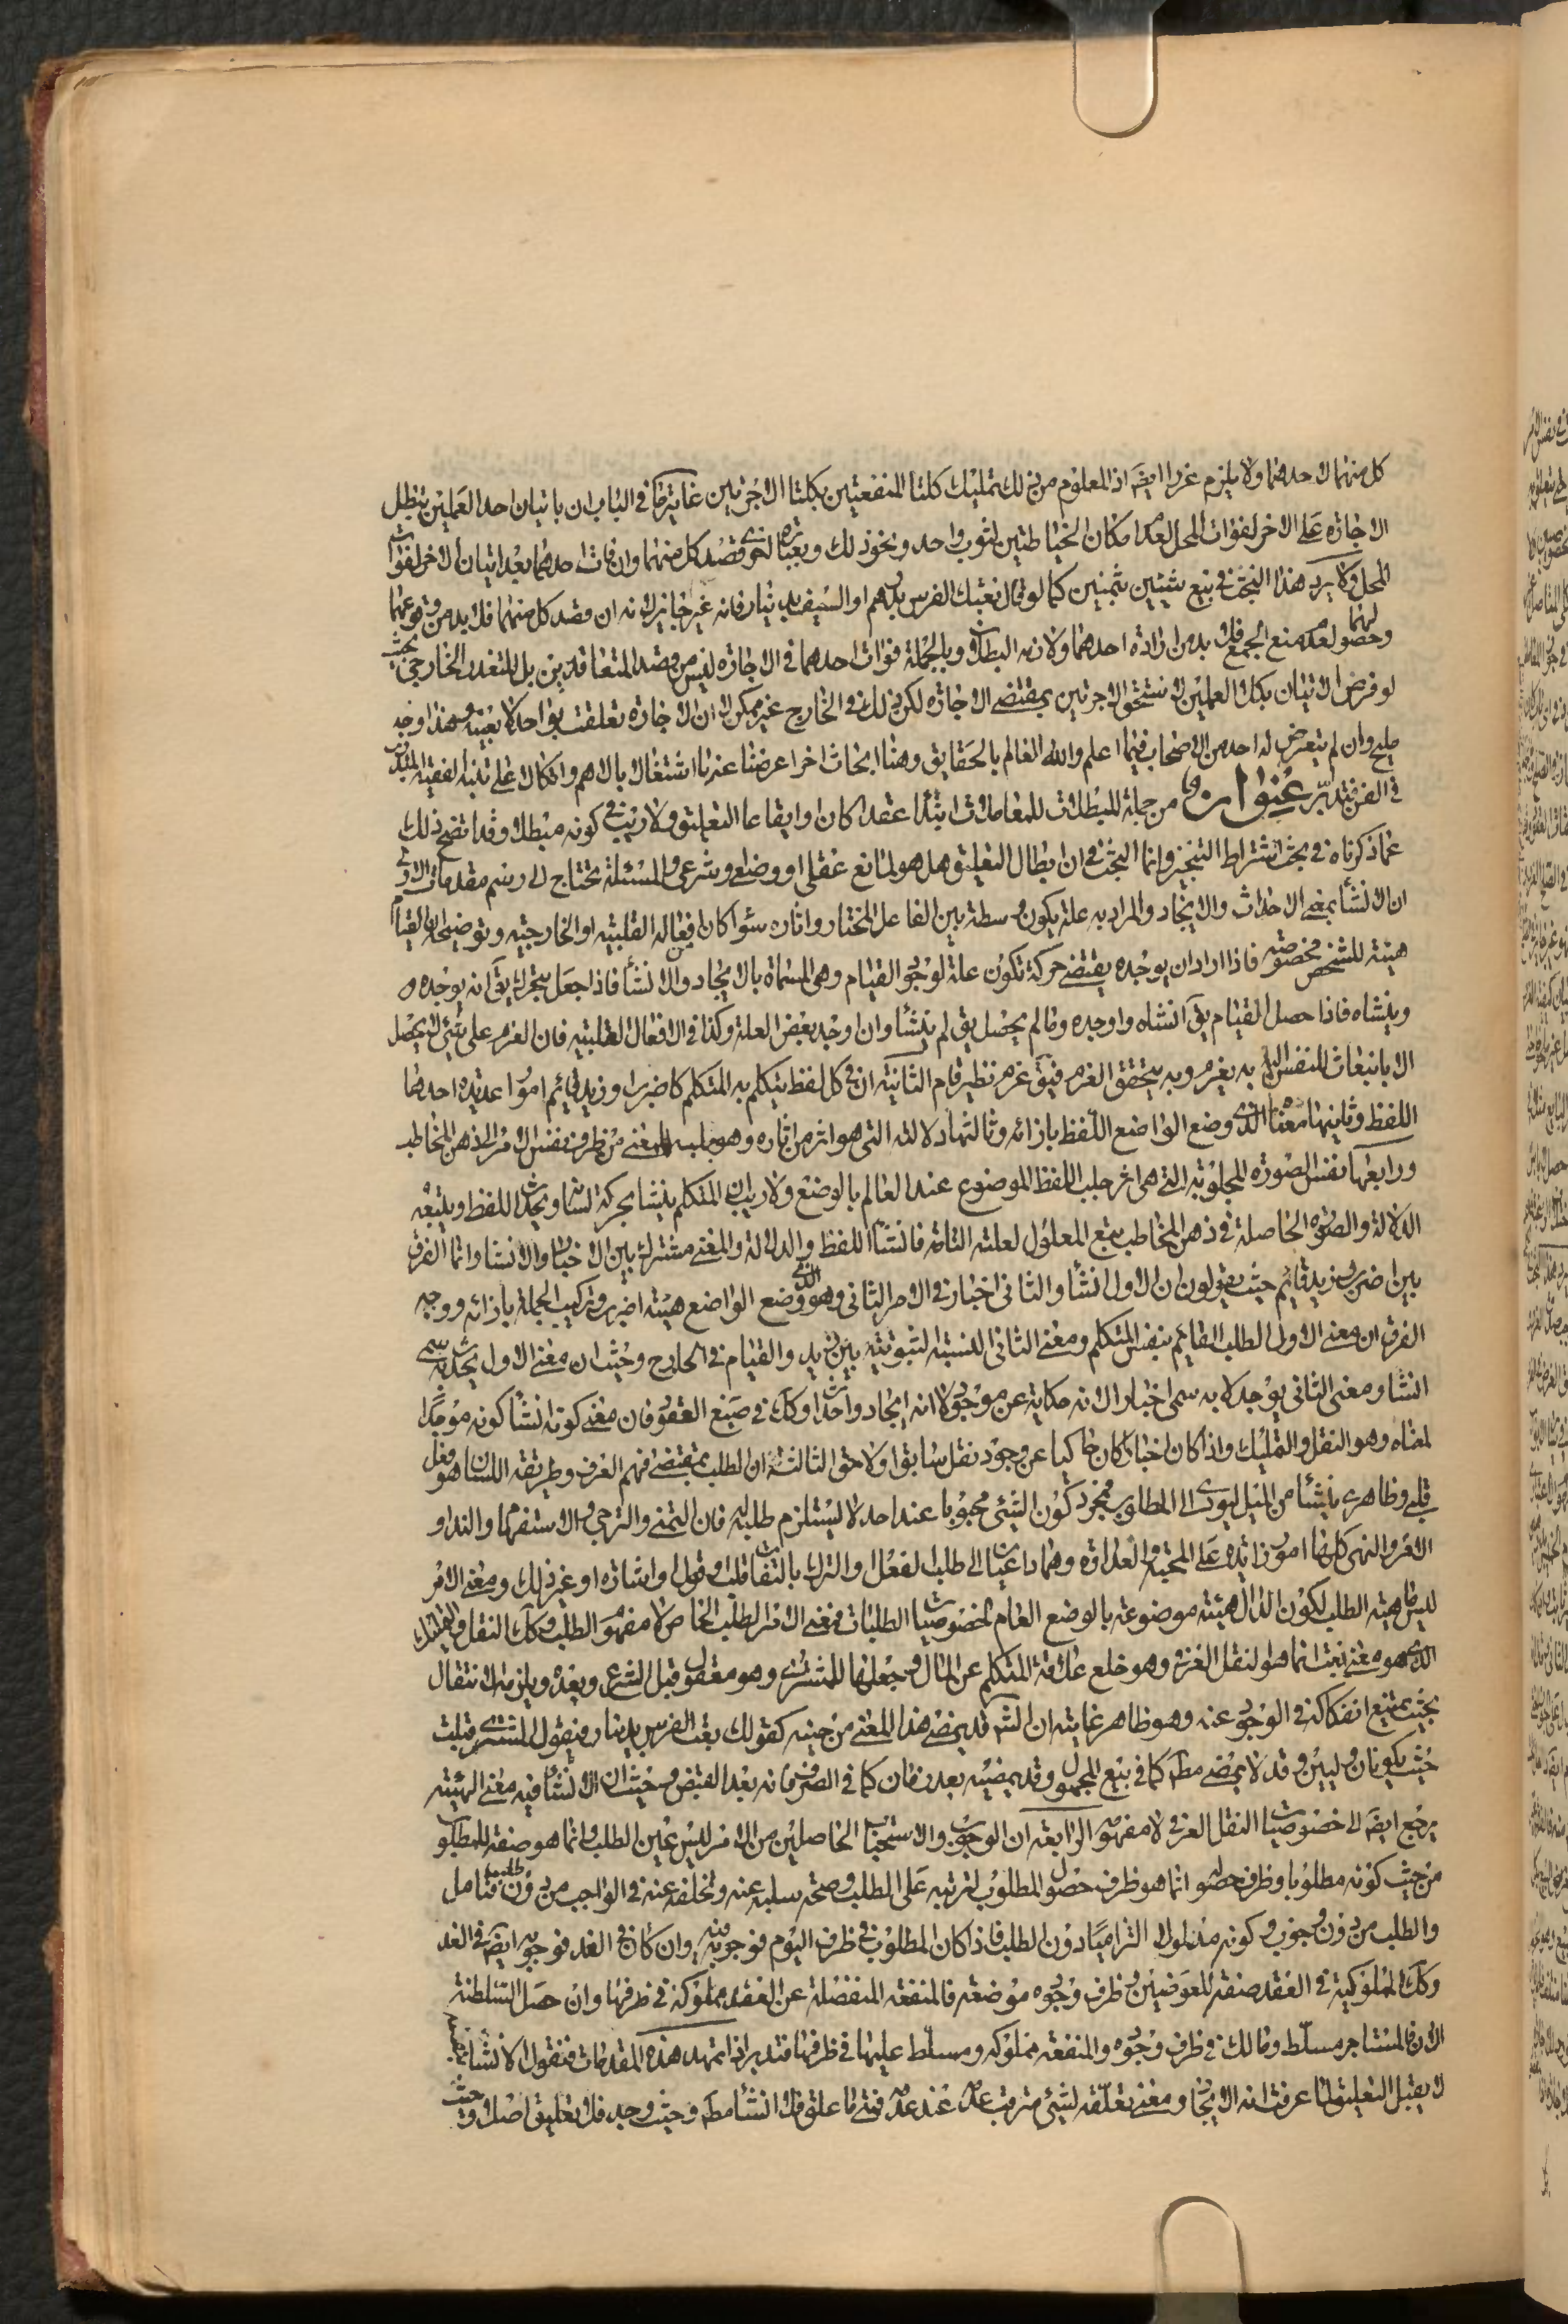 كل منهما لاحدهما ولا يلزم غررا ايضَ اذ المعلوم من ذلك تمليك كلتا المنفعتين بكلتا الاجرتين غاية ما فى الباب ان باتيان احد العملين تبطل
الاجارة على الاخر لفوات المحل لعدم امكان الخياطتين لثوب واحد ونحو ذلك وبعبارة اخرى قصد كل منهما وان فات احدهما بعد اتيان الاخر لفوات
المحل ولا يرد هذا البحث فى بيع شيئين بثمنين كما لو قال بعتك الفرس بدرهم او السيف بدينار فانه غير جايز لانه ان قصد كل منهما فلا بد من وقوعهما
وحصولهما لعدم منع الجمع فلا بد من ارادة احدهما ولازمه البطلان وبالجملة فوات احدهما فى الاجارة ليس من قصد المتعاقدين بل للتعذر الخارجى بحيث
لو فرض الاتيان بكلا العملين لاستحق الاجرتين بمقتضى الاجارة لكن ذلك فى الخارج غير ممكن لا ان الاجارة تعلقت بواحد لا بعينه وهذا وجه
مليح وان لم يتعرض له احد من الاصحاب فيما اعلم والله العالم بالحقايق وهنا ابحاث اخر اعرضنا عنها اشتغالا بالاهم واتكالا على تنبه الفقيه المتدرب
فى الفن فتدبّر عنوان من جملة المبطلات للمعاملات ابتداء عقدا كان او ايقاعا التعليق ولا ريب فى كونه مبطلا وقد اتضح ذلك
عما ذكرناه فى بحث اشتراط التنجيز وانما البحث فى ان ابطال التعليق هل هو لمانع عقلى او وضعى وشرعى والمسئلة تحتاج الى رسم مقدمات الاولى
ان الانشاء بمعنى الاحداث والايجاد والمراد به علة يكون وسطة بين الفاعل المختار واثاره سواء كان افعاله القلبية او الخارجية وتوضيحه ان القيام
هيئة للشخص مخصوصة فاذا اراد ان يوجده يقتضى حركة تكون علة لوجود القيام وهى المسماة بالايجاد والانشاء فاذا جعل يتحرك يقَ انه يوجده و
وينشاه فاذا حصل القيام يقَ انشاه واوجده وما لم يحصل يق لم ينشا وان اوجد بعض العلة وكذا فى الافعال القلبية فان العزم على شئ لا يحصل
الا بانبعاث للنفس اليه به يعزم وبه يتحقق العزم فيقَ عزم نظير قام الثانية ان فى كل لفظ يتكلم به المتكلم كاضرب او زيد قائم امورا عديدة احدها
اللفظ وثانيها معناه الذى وضع الواضع اللفظ بازائه وثالثها دلالته التى هو اثر من اثاره وهو جلب المعنى من ظرف نفس الامر الى ذهن المخاطب
ورابعها نفس الصورة المجلوبة التى هى اثر جلب اللفظ الموضوع عند العالم بالوضع ولا ريب ان المتكلم ينشا بحركة لسانه ويحدث اللفظ ويتبعه
الدلالة والصورة الحاصلة فى ذهن المخاطب تبع المعلول لعلته التامة فانشاء اللفظ والدلالة والمعنى مشترك بين الاخبار والانشاء وانما الفرق
بين اضرب وزيد قائم حيث يقولون ان الاول انشاء والثانى اخبار فى الامر الثانى وهو الذى وضع الواضع هيئة اضرب وتركيب الجملة بازائه ووجه
الفرق ان معنى الاول الطلب القائم بنفس المتكلم ومعنى الثانى النسبة الثبوتية بين زيد والقيام فى الخارج وحيث ان معنى الاول يحدث به سمى
انشاء ومعنى الثانى يوجد لا به سمى اخبارا لانه حكاية عن موجود لا انه ايجاد واحداث وكذا فى صيغ العقود فان معنى كونه انشاء كونه موجدا
لمعناه وهو النقل والتمليك واذا كان اخبارا كان حاكيا عن وجود نقل سابق او لاحق الثالثة ان الطلب بمقتضى فهم العرف وطريقة اللسان هو فعل
قلبى وظاهرى ينشأ من الميل ليؤدى الى المطلوب فمجرد كون الشئ محبوبا عند احد لا يستلزم طلبه فان التمنى والترجى والاستفهام والنداء و
الامر والنهى كل منها امور زائدة على المحبة والعداوة وهما داعيان الى طلب لفعل والترك بالتفات قلب وقول واشارة او غير ذلك ومعنى الامر
ليس ماهية الطلب لكون الدال الهيئة موضوعة بالوضع العام لخصوصيات الطلبات فمعنى الامر الطلب الخاص لا مفهوم الطلب وكذا النقل والتمليك
الذى هو معنى بعت انما هو النقل العزمى وهو خلع علاقة المتكلم عن المال وجعلها للمشترى وهو معقول قبل الشرع وبعده ويلزمه الانتقال
بحيث يمتنع انفكاكه فى الوجود عنه وهو ظاهر غايته ان الشَرع قد يمضى هذا المعنى من حينه كقولك بعت الفرس بدينار فيقول المشترى قبلت
حيث يكونان وليين وقد لا يمضى مطلقا كما فى بيع المجهول وقد يمضيه بعد زمان كما فى الصرف فانه بعد القبض وحيث ان الانشاء فيه معنى الهيئة
يرجع ايضَ الى خصوصيات النقل العزمى لا مفهومه الرابعة ان الوجوب والاستحباب الحاصلين من الامر ليس عين الطلب وانما هو صفة للمطلوب
من حيث كونه مطلوبا وظرف حصوله انما هو ظرف حصول المطلوب لترتبه على الطلب وصحة سلبه عنه وتخلفه عنه فى الواجب من دون طلب فتامل
والطلب من دون وجوب وكونه مدلولا التزاميا دون الطلب فاذا كان المطلوب فى ظرف اليوم فوجوبه فيه وان كان فى الغد فوجوبه ايضَ فى الغد
وكذا المملوكية فى العقد صفة للعوضين فى ظرف وجود موضعه فالمنفعة المنفصلة عن العقد مملوكة فى ظرفها وان حصل السلطنة
الان فالمستاجر مسلّط ومالك فى ظرف وجوده والمنفعة مملوكه ومسلّط عليها فى ظرفها فتدبر اذا تمهد هذه المقدمات فنقول الانشاء
لا يقبل التعليق لما عرفت انه الايجاد ومعنى تعلقه لشئ مترتب عدمه عند عدمه فمتى ما علق فلا انشاء مطلقا وحيث وجد فلا تعليق اصلا وحيث